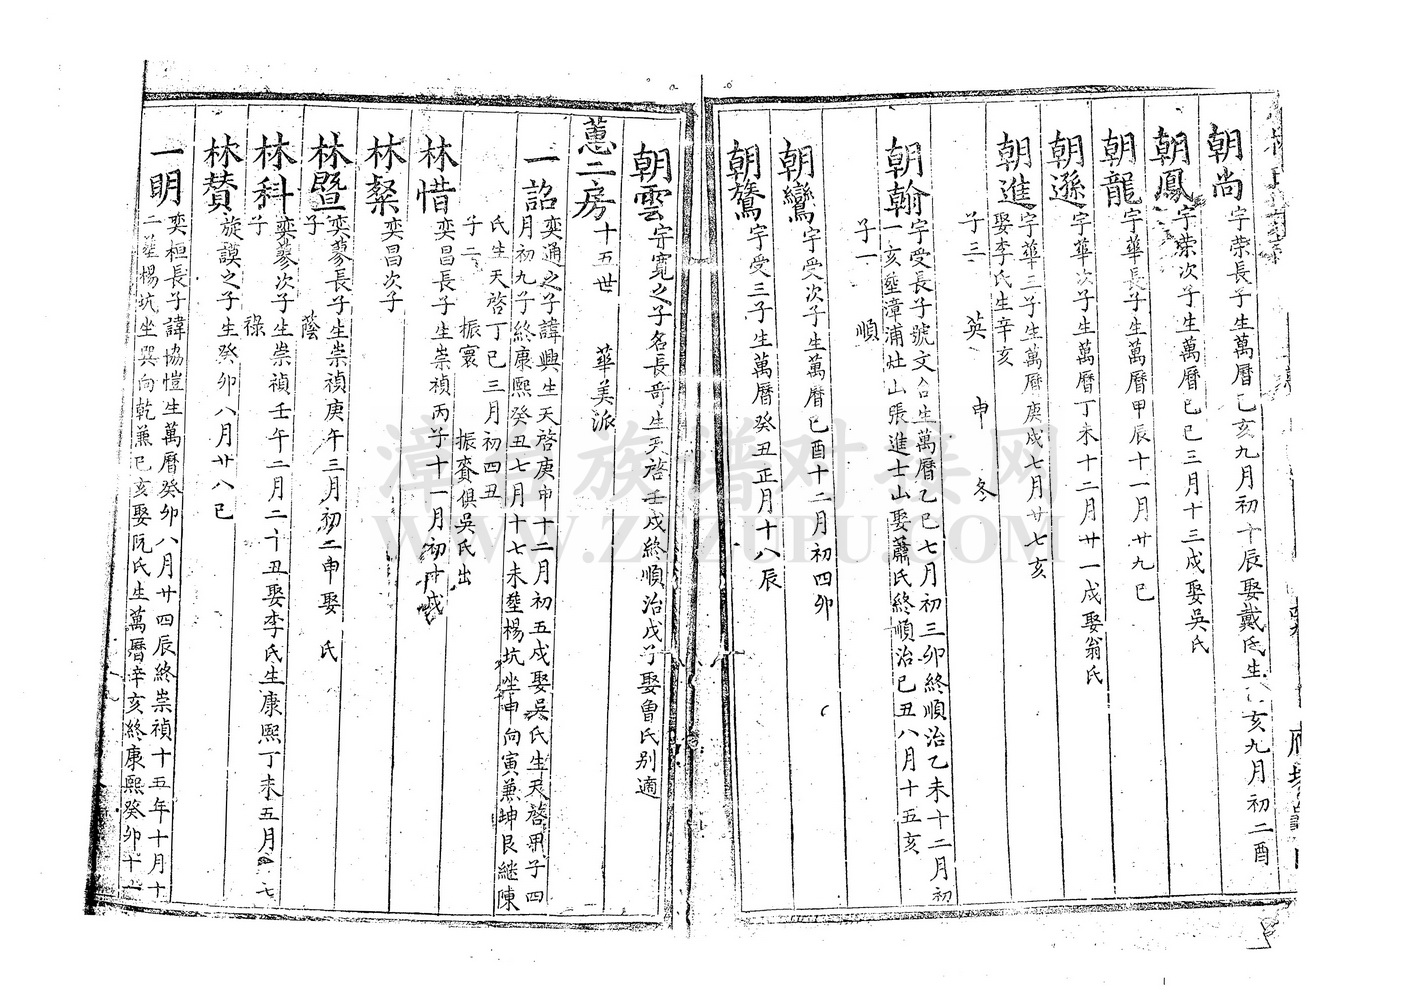 朝尚 字荣長子生萬曆乙亥九月初十辰娶戴氏生 亥九月初二酉
朝鳳 字荣次子生萬曆己巳三月十三戌娶吳氏
朝龍 字華長子生萬曆甲辰十一月廿九巳
朝遜 字華次子生萬曆丁未十二月廿一戌娶翁氏
朝進 字華三子生萬曆庚戌七月廿七亥
娶李氏生辛亥
子三 英 申 冬
朝翰 字受長子號文台生萬曆乙巳七月初三卯終順治乙未十二月初
一亥塟漳浦灶山張進士山娶蕭氏終順治己丑八月十五亥
子一 順
朝鸞 字受次子生萬曆己酉十二月初四卯
朝鶯 字受三子生萬曆癸丑正月十八辰
朝雲 字寬之子名長哥生天啓壬戌終順治戊子娶魯氏别適
蕙二房 十五世 華美派
一詔 奕通之子諱興生天啓庚申十二月初五戌娶吳氏生天啓甲子四
月初九子終康熙癸丑七月十七未塟楊坑坐申向寅兼坤艮継陳
氏生天啓丁巳三月初四丑
子二 振寰 振賚俱吳氏出
林惜 奕昌長子生崇禎丙子十一月初十戌
林粲 奕昌次子
林暨 奕蓼長子生崇禎庚午三月初二申娶 氏
子 蔭
林科 奕蓼次子生崇禎壬午二月二十丑娶李氏生康熙丁未五月 七
子 祿
林賛 旋謨之子生癸卯八月廿八巳
一明 奕桓長子諱協愷生萬曆癸卯八月廿四辰終崇禎十五年十月十
二塟楊坑坐巽向乾兼巳亥娶阮氏生萬曆辛亥終康熙癸卯十一
漳台族谱对接网
WWW.ZTZUPU.COM